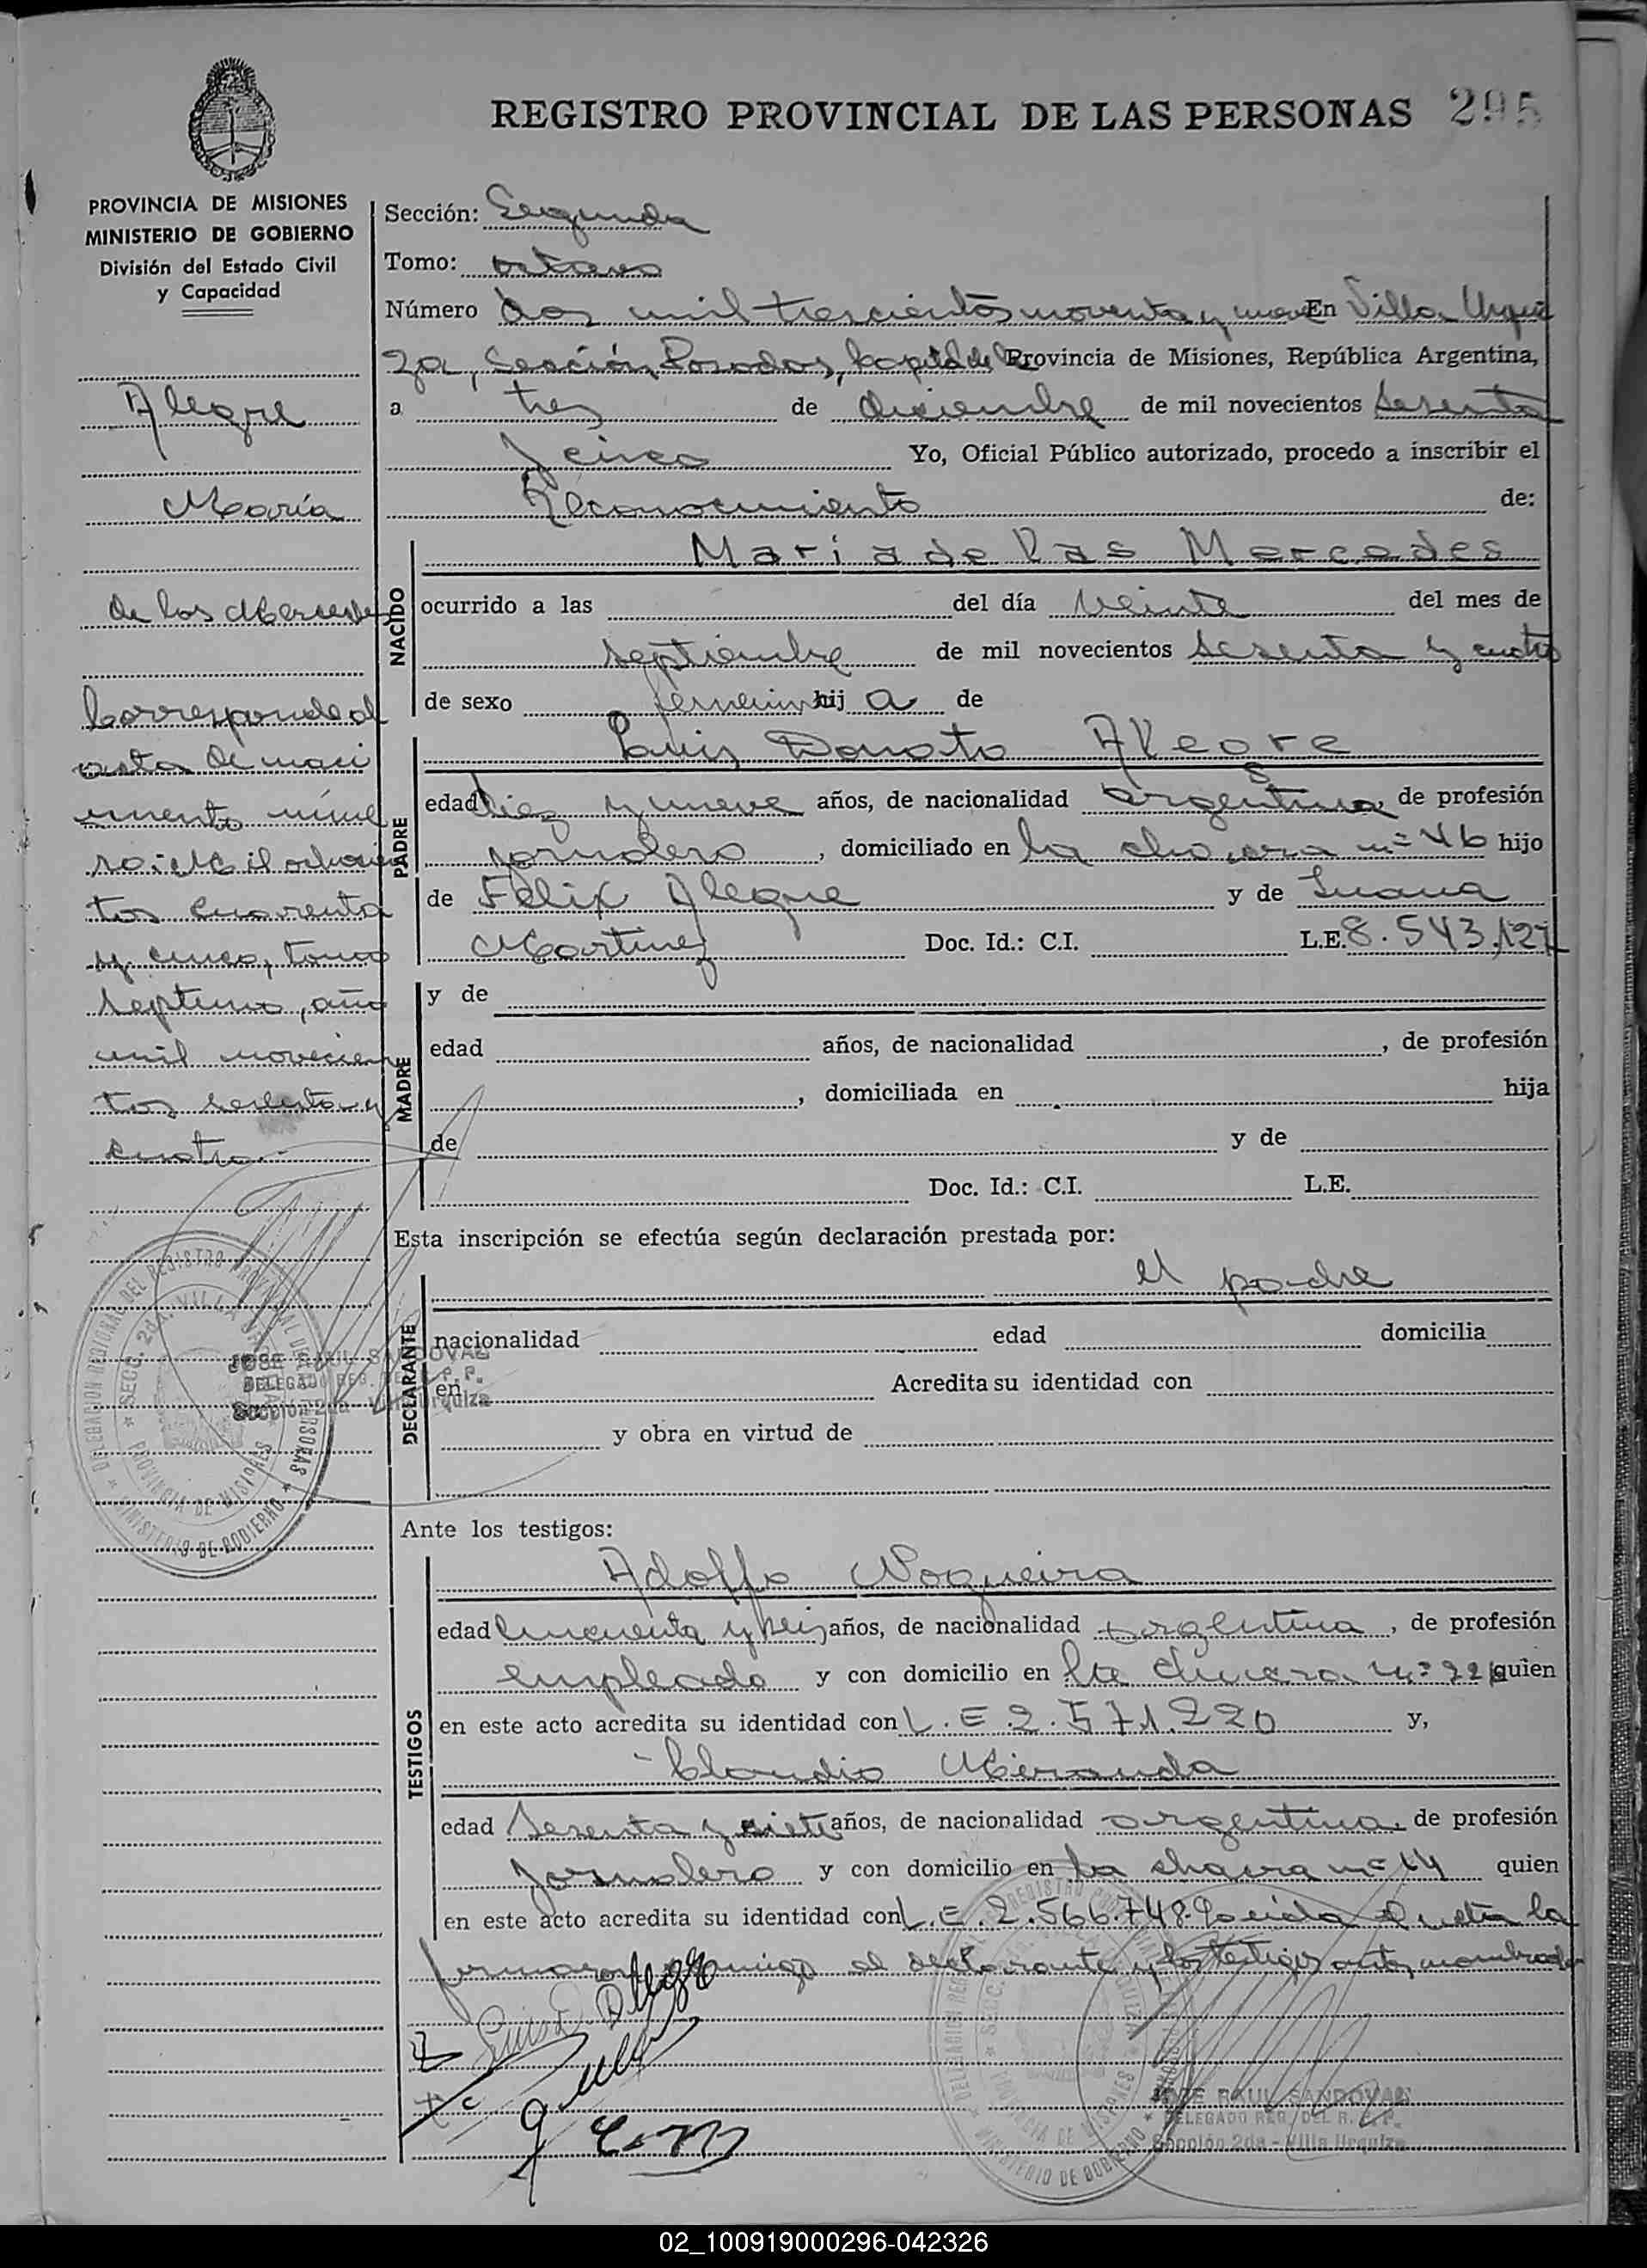 REGISTRO PROVINCIAL DE LAS PERSONAS 295
PROVINCIA DE MISIONES
MINISTERIO DE GOBIERNO
División del Estado Civil
y Capacidad
Alegre
María
de las Mercedes
Corresponde al
acta de naci
miento núme
ro: Mil ochocien
tos cuarenta
y cinco, tomo
septimo, año
mil novecien
tos sesenta y
cuatro.-
Sección: Segunda
Tomo: octavo
Número dos mil trescientos noventa y nueve En Villa Urqui
za, Sección Posadas, Capital de Provincia de Misiones, República Argentina,
a tres de diciembre de mil novecientos sesenta
y cinco Yo, Oficial Público autorizado, procedo a inscribir el
Reconocimiento de:
NACIDO
Maria de las Mercedes
ocurrido a las del día veinte del mes de
septiembre de mil novecientos sesenta y cuatro
de sexo femenino hij a de
PADRE
Luis Donato Alegre
edad diez y nueve años, de nacionalidad argentina de profesión
jornalero, domiciliado en la chacra nº 46 hijo
de Felix Alegre y de Juana
Martinez Doc. Id.: C.I. L.E. 8.543.127
MADRE
y de
edad años, de nacionalidad , de profesión
, domiciliada en hija
de y de
Doc. Id.: C.I. L.E.
Esta inscripción se efectúa según declaración prestada por:
DECLARANTE
el padre
nacionalidad edad domicilia
en Acredita su identidad con
y obra en virtud de
Ante los testigos:
TESTIGOS
Adolfo Nogueira
edad cincuenta y seis años, de nacionalidad argentina, de profesión
empleado y con domicilio en la chacra nº 22 quien
en este acto acredita su identidad con L.E 2.571.220 y,
Claudio Miranda
edad sesenta y siete años, de nacionalidad argentina, de profesión
jornalero y con domicilio en la chacra nº 14 quien
en este acto acredita su identidad con L.E. 2.566.748. Leida el acta la
firmaron conmigo el declarante y los testigos antes nombrados
Luis D Alegre
C. M
DELEGACION REGIONAL DEL REGISTRO PROVINCIAL DE LAS PERSONAS
SECC. 2da. VILLA URQUIZA
PROVINCIA DE MISIONES
MINISTERIO DE GOBIERNO
JOSE RAUL SANDOVAL
DELEGADO REG. DEL R. P. P.
Sección 2da - Villa Urquiza
DELEGACION REGIONAL DEL REGISTRO PROVINCIAL
PROVINCIA DE MISIONES
MINISTERIO DE GOBIERNO
JOSE RAUL SANDOVAL
DELEGADO REG. DEL R. P. P.
Sección 2da - Villa Urquiza
02_100919000296-042326